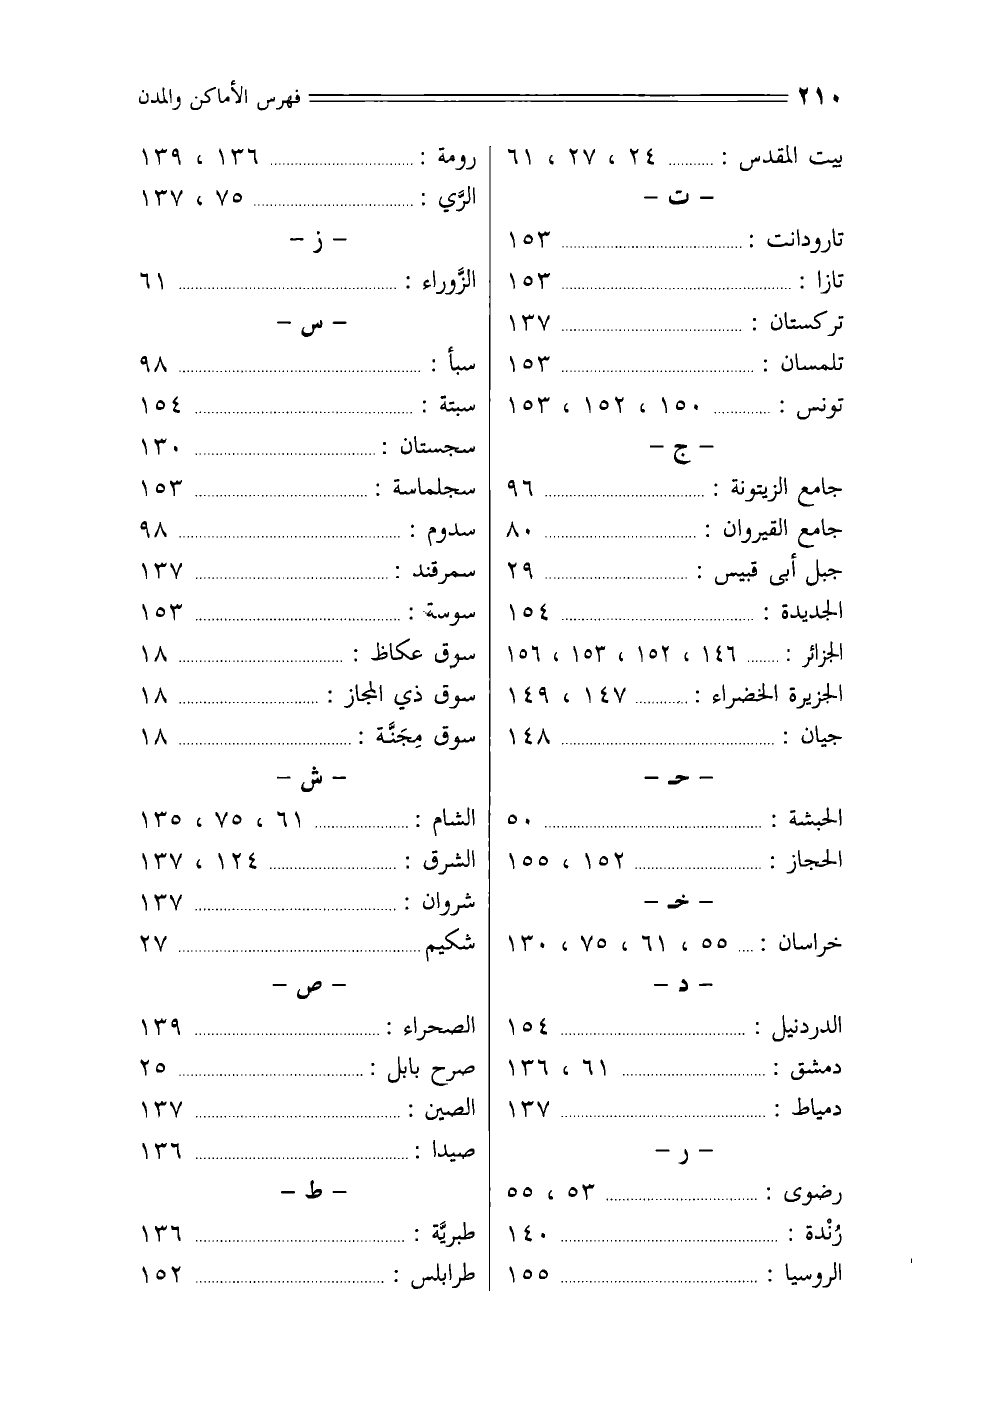 ٢١٠ فهرس الأماكن والمدن
بيت المقدس : .......... ٢٤ ، ٢٧ ، ٦١
– ت –
تارودانت : .......... ١٥٣
تازا : .......... ١٥٣
تركستان : .......... ١٣٧
تلمسان : .......... ١٥٣
تونس : .......... ١٥٠ ، ١٥٢ ، ١٥٣
– ج –
جامع الزيتونة : .......... ٩٦
جامع القيروان : .......... ٨٠
جبل أبى قبيس : .......... ٢٩
الجديدة : .......... ١٥٤
الجزائر : .......... ١٤٦ ، ١٥٢ ، ١٥٣ ، ١٥٦
الجزيرة الخضراء : .......... ١٤٧ ، ١٤٩
جيان : .......... ١٤٨
– حـ –
الحبشة : .......... ٥٠
الحجاز : .......... ١٥٢ ، ١٥٥
– خـ –
خراسان : .... ٥٥ ، ٦١ ، ٧٥ ، ١٣٠
– د –
الدردنيل : .......... ١٥٤
دمشق : .......... ٦١ ، ١٣٦
دمياط : .......... ١٣٧
– ر –
رضوى : .......... ٥٣ ، ٥٥
رُنْدة : .......... ١٤٠
الروسيا : .......... ١٥٥
رومة : .......... ١٣٦ ، ١٣٩
الرَّي : .......... ٧٥ ، ١٣٧
– ز –
الزَّوراء : .......... ٦١
– س –
سبأ : .......... ٩٨
سبتة : .......... ١٥٤
سجستان : .......... ١٣٠
سجلماسة : .......... ١٥٣
سدوم : .......... ٩٨
سمرقند : .......... ١٣٧
سوسة : .......... ١٥٣
سوق عكاظ : .......... ١٨
سوق ذي المجاز : .......... ١٨
سوق مِجَنَّة : .......... ١٨
– ش –
الشام : .......... ٦١ ، ٧٥ ، ١٣٥
الشرق : .......... ١٢٤ ، ١٣٧
شروان : .......... ١٣٧
شكيم .......... ٢٧
– ص –
الصحراء : .......... ١٣٩
صرح بابل : .......... ٢٥
الصين : .......... ١٣٧
صيدا : .......... ١٣٦
– ط –
طبريَّة : .......... ١٣٦
طرابلس : .......... ١٥٢